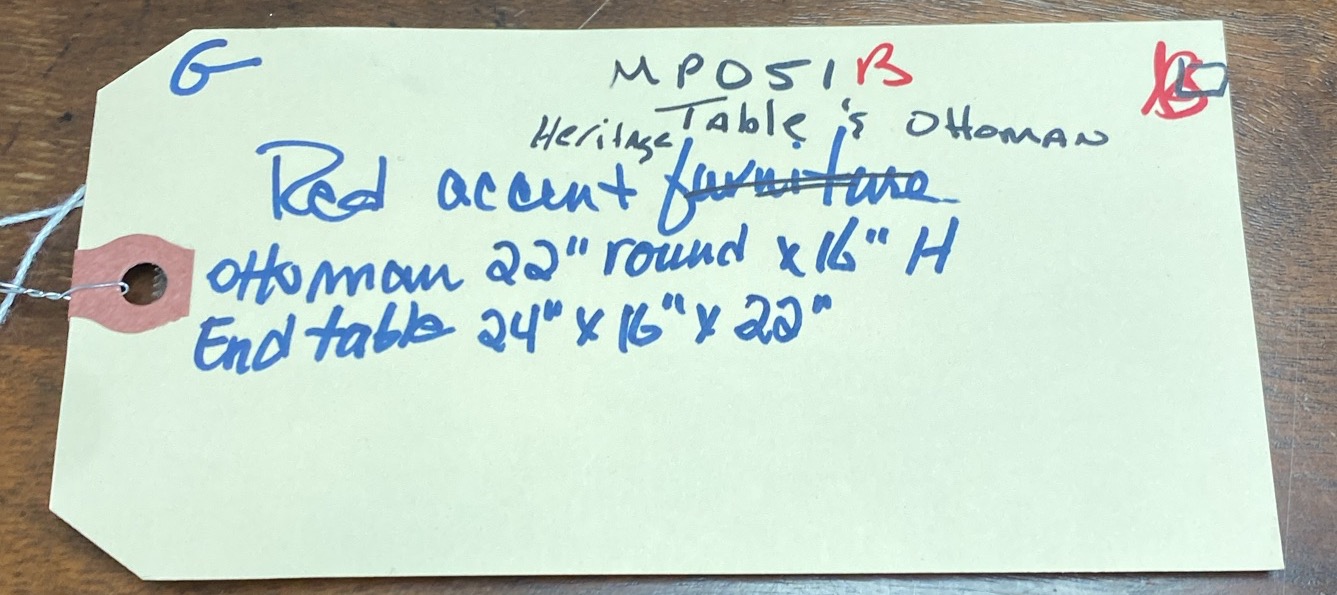 G
MP051B
Heritage Table's Ottoman
Red accent furniture
Ottoman 22" round x 16" H
End table 24" x 16" x 22"